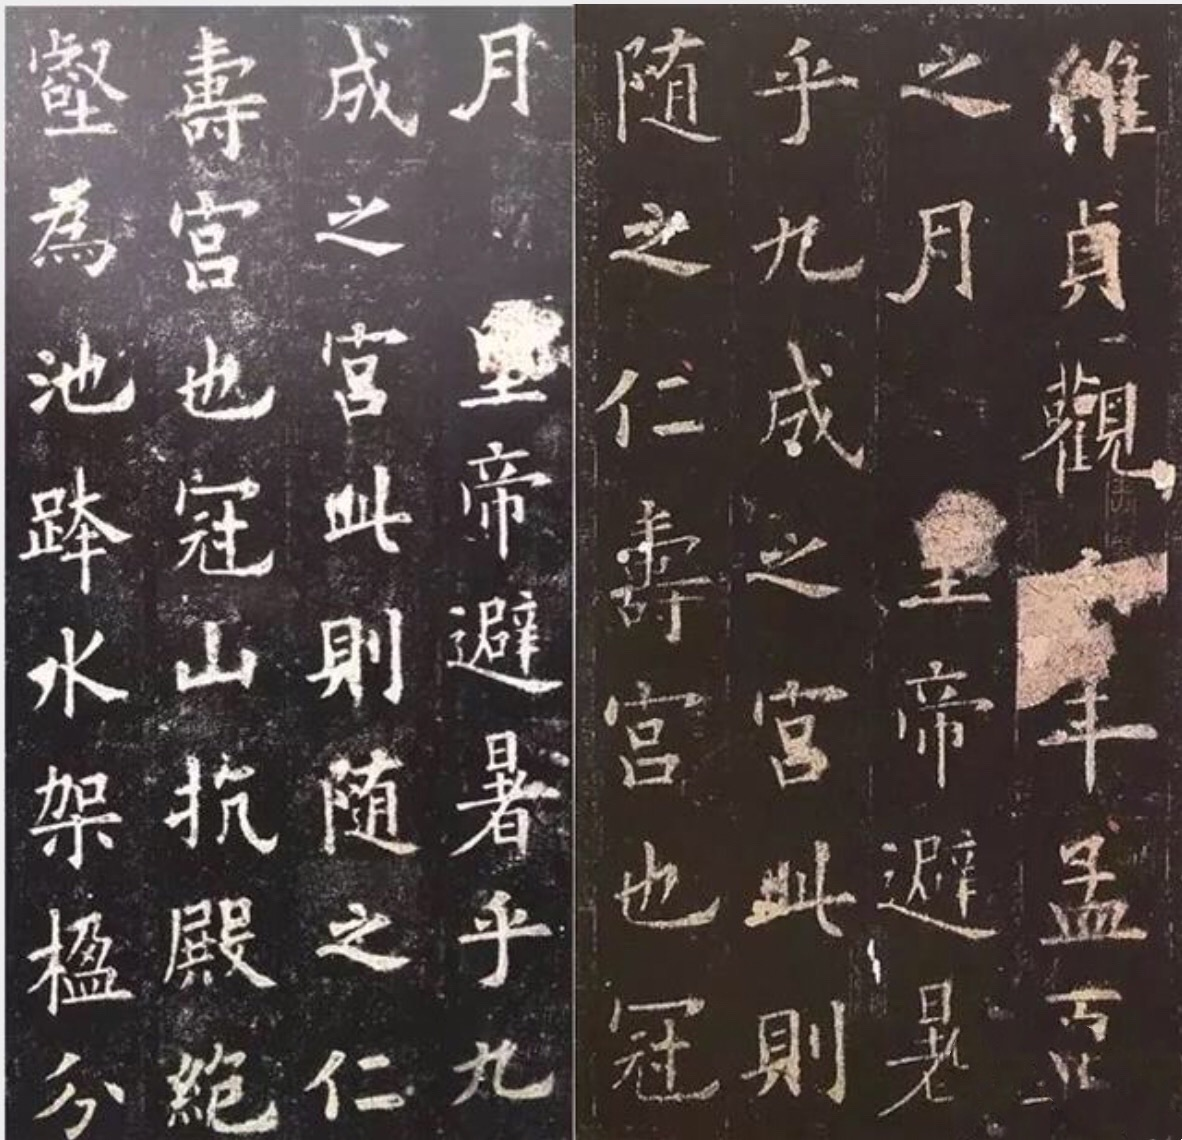 維貞觀六年孟夏
之月 皇帝避暑
乎九成之宮此則
随之仁壽宮也冠
月 皇帝避暑乎九
成之宮此則随之仁
壽宮也冠山抗殿絶
壑為池跨水架楹分